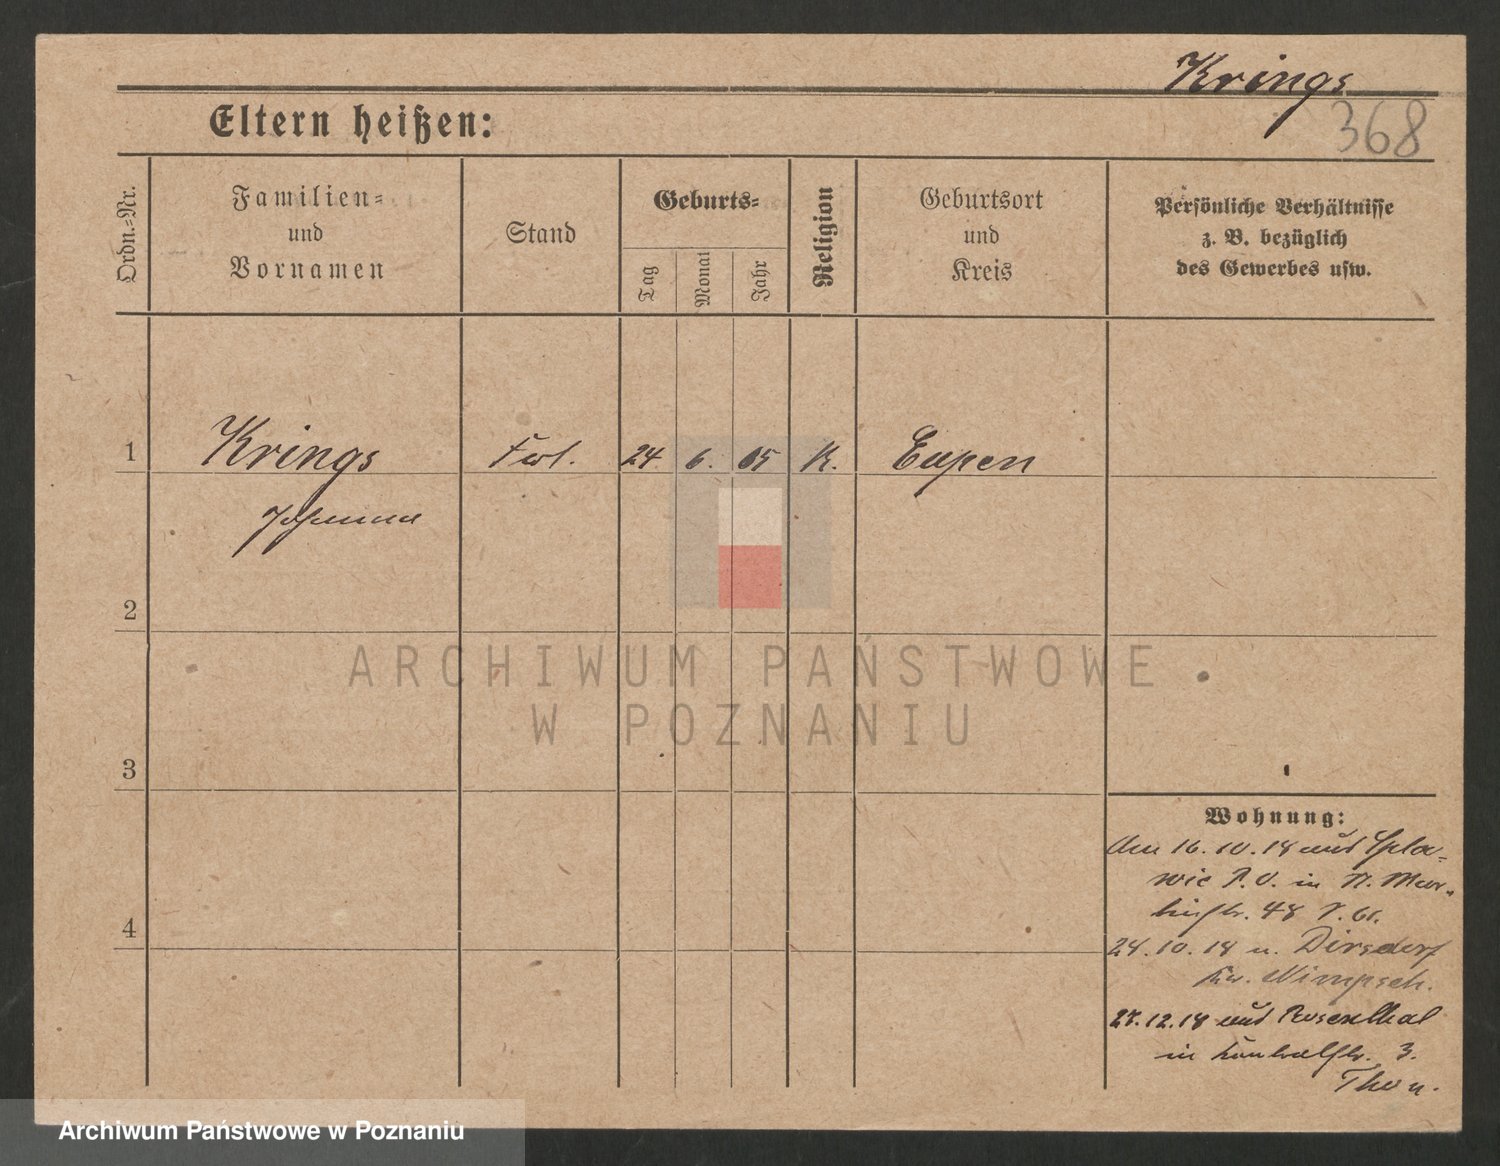 Krings
368
Eltern heißen:
Ordn.-Nr.
Familien-
und
Vornamen
Stand
Geburts-
Tag
Monat
Jahr
Religion
Geburtsort
und
Kreis
Persönliche Verhältnisse
z. B. bezüglich
des Gewerbes usw.
1
Krings
24
6.
05
K.
Eupen
Johanna
2
ARCHIWUM PAŃSTWOWE
W POZNANIU
3
Wohnung:
Am 16.10.18 aus Spla-
wie P.O. in
48
24.10.18 n. Dirsdorf
Kr. Nimpsch.
27.12.18 aus Rosenthal
in 3.
4
Archiwum Państwowe w Poznaniu